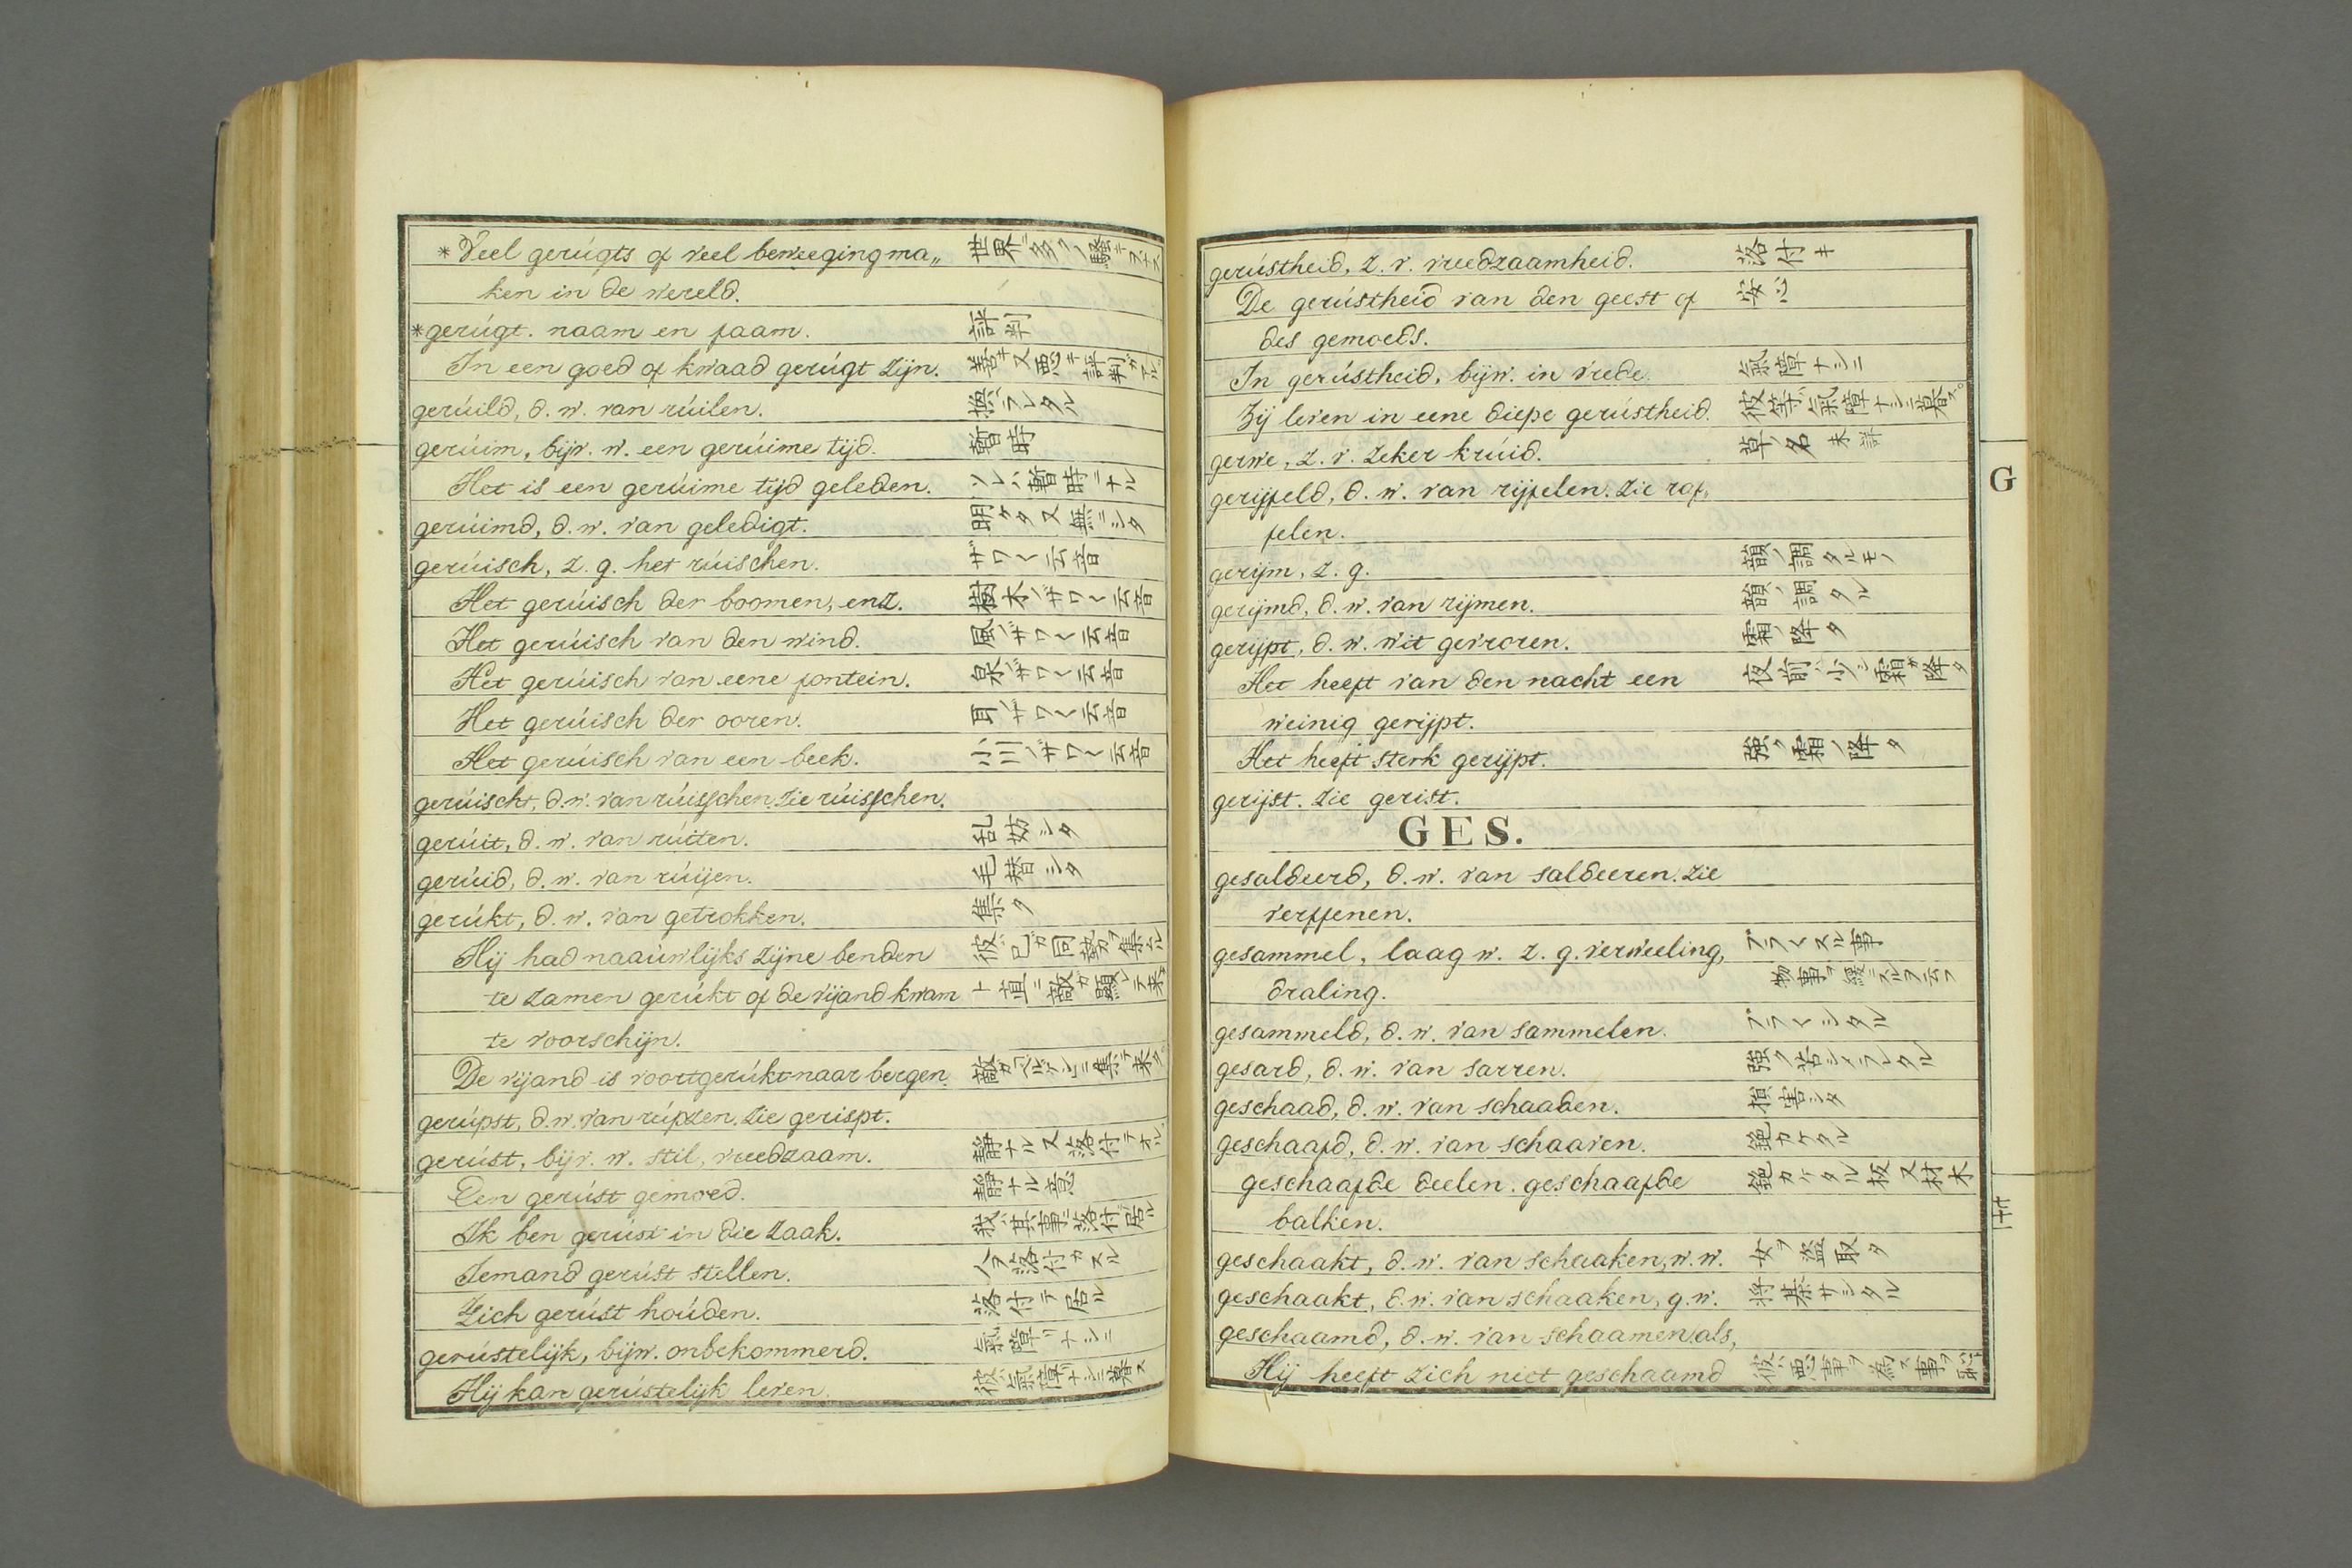 *Veel gerúgts of veel beweeging ma„ 世界ニ多クノ騒ヲナス
ken in de wereld.
*gerúgt. naam en faam. 評判
In een goed of kwaad gerúgt zijn. 善キ又悪キ評判ガアル
gerúild, d. w. van rúilen. 換ラレタル
gerúim, bijv. w. een gerúime tijd. 暫時
Het is een gerúime tijd geleden. ソレハ暫時ニナル
gerúimd, d. w. van geledigt. 明ケタ又無ニシタ
gerúisch, z. g. het rúischen. ザワ〱云音
Het gerúisch der boomen, enz. 樹木ノザワ〱云音
Het gerúisch van den wind. 風ノザワ〱云音
Het gerúisch van eene fontein. 泉ノザワ〱云音
Het gerúisch der ooren. 耳ノザワ〱云音
Het gerúisch van een beek. 小川ノザワ〱云音
gerúischt, d. w. van rúisschen. zie rúisschen.
gerúit, d. w. van rúiten. 乱妨シタ
gerúid, d. w. van rúijen. 毛替シタ
gerúkt, d. w. van getrokken. 集タ
Hij had naaúwlijks zijne benden 彼ハ己ガ同勢ヲ集ムル
te zamen gerúkt of de vijand kwam ト直ニ敵ガ顕レテ来タ
te voorschijn.
De vijand is voortgerúkt naar bergen. 敵ガベルゲンニ集テ来タ
gerúpst, d. w. van rúpzen. zie gerispt.
gerúst, bijv. w. stil, vreedzaam. 静ナル又落付テオル
Een gerúst gemoed. 静ナル意
Ik ben gerúst in die zaak. 我ハ其事ニ落付居ル
Iemand gerúst stellen. 人ヲ落付カスル
Zich gerúst hoúden. 落付テ居ル
gerústelijk, bijw. onbekommerd. 氣障リナシニ
Hij kan gerústelijk leven. 彼ハ氣障リナシニ暮ス
gerústheid, z. v. vreedzaamheid. 落付キ
De gerústheid van den geest of 安心
des gemoeds.
In gerústheid, bijw. in vrede. 氣障ナシニ
Zij leven in eene diepe gerústheid. 彼等ハ氣障ナシニ暮ス。
gerwe, z. v. zeker krúid. 草ノ名 未詳
gerijfeld, d. w. van rijfelen. zie raf„
felen.
gerijm, z. g. 韻ノ調タルモノ
gerijmd, d. w. van rijmen. 韻ノ調タル
gerijpt, d. w. wit gevroren. 霜ノ降タ
Het heeft van den nacht een 夜前ハ少シ霜ガ降タ
weinig gerijpt.
Het heeft sterk gerijpt. 強ク霜ノ降タ
gerijst. zie gerist.
GES.
gesaldeerd, d. w. van saldeeren. zie
vereffenen.
gesammel, laag w. z. g. verweeling, ブラ〱スル事
draling. 物事ヲ緩ニスルヲ云フ
gesammeld, d. w. van sammelen. ブラ〱シタル
gesard, d. w. van sarren. 強ク苦シメラレタル
geschaad, d. w. van schaaden. 損害シタ
geschaafd, d. w. van schaaven. 鉋カケタル
geschaafde deelen. geschaafde 鉋カケタル板又材木
balken.
geschaakt, d. w. van schaaken, w. w. 女ヲ盗取タ
geschaakt, d. w. van schaaken, g. w. 将棊サシタル
geschaamd, d. w. van schaamen, als,
Hij heeft zich niet geschaamd 彼ハ悪事ヲ為ス事ヲ恥
G